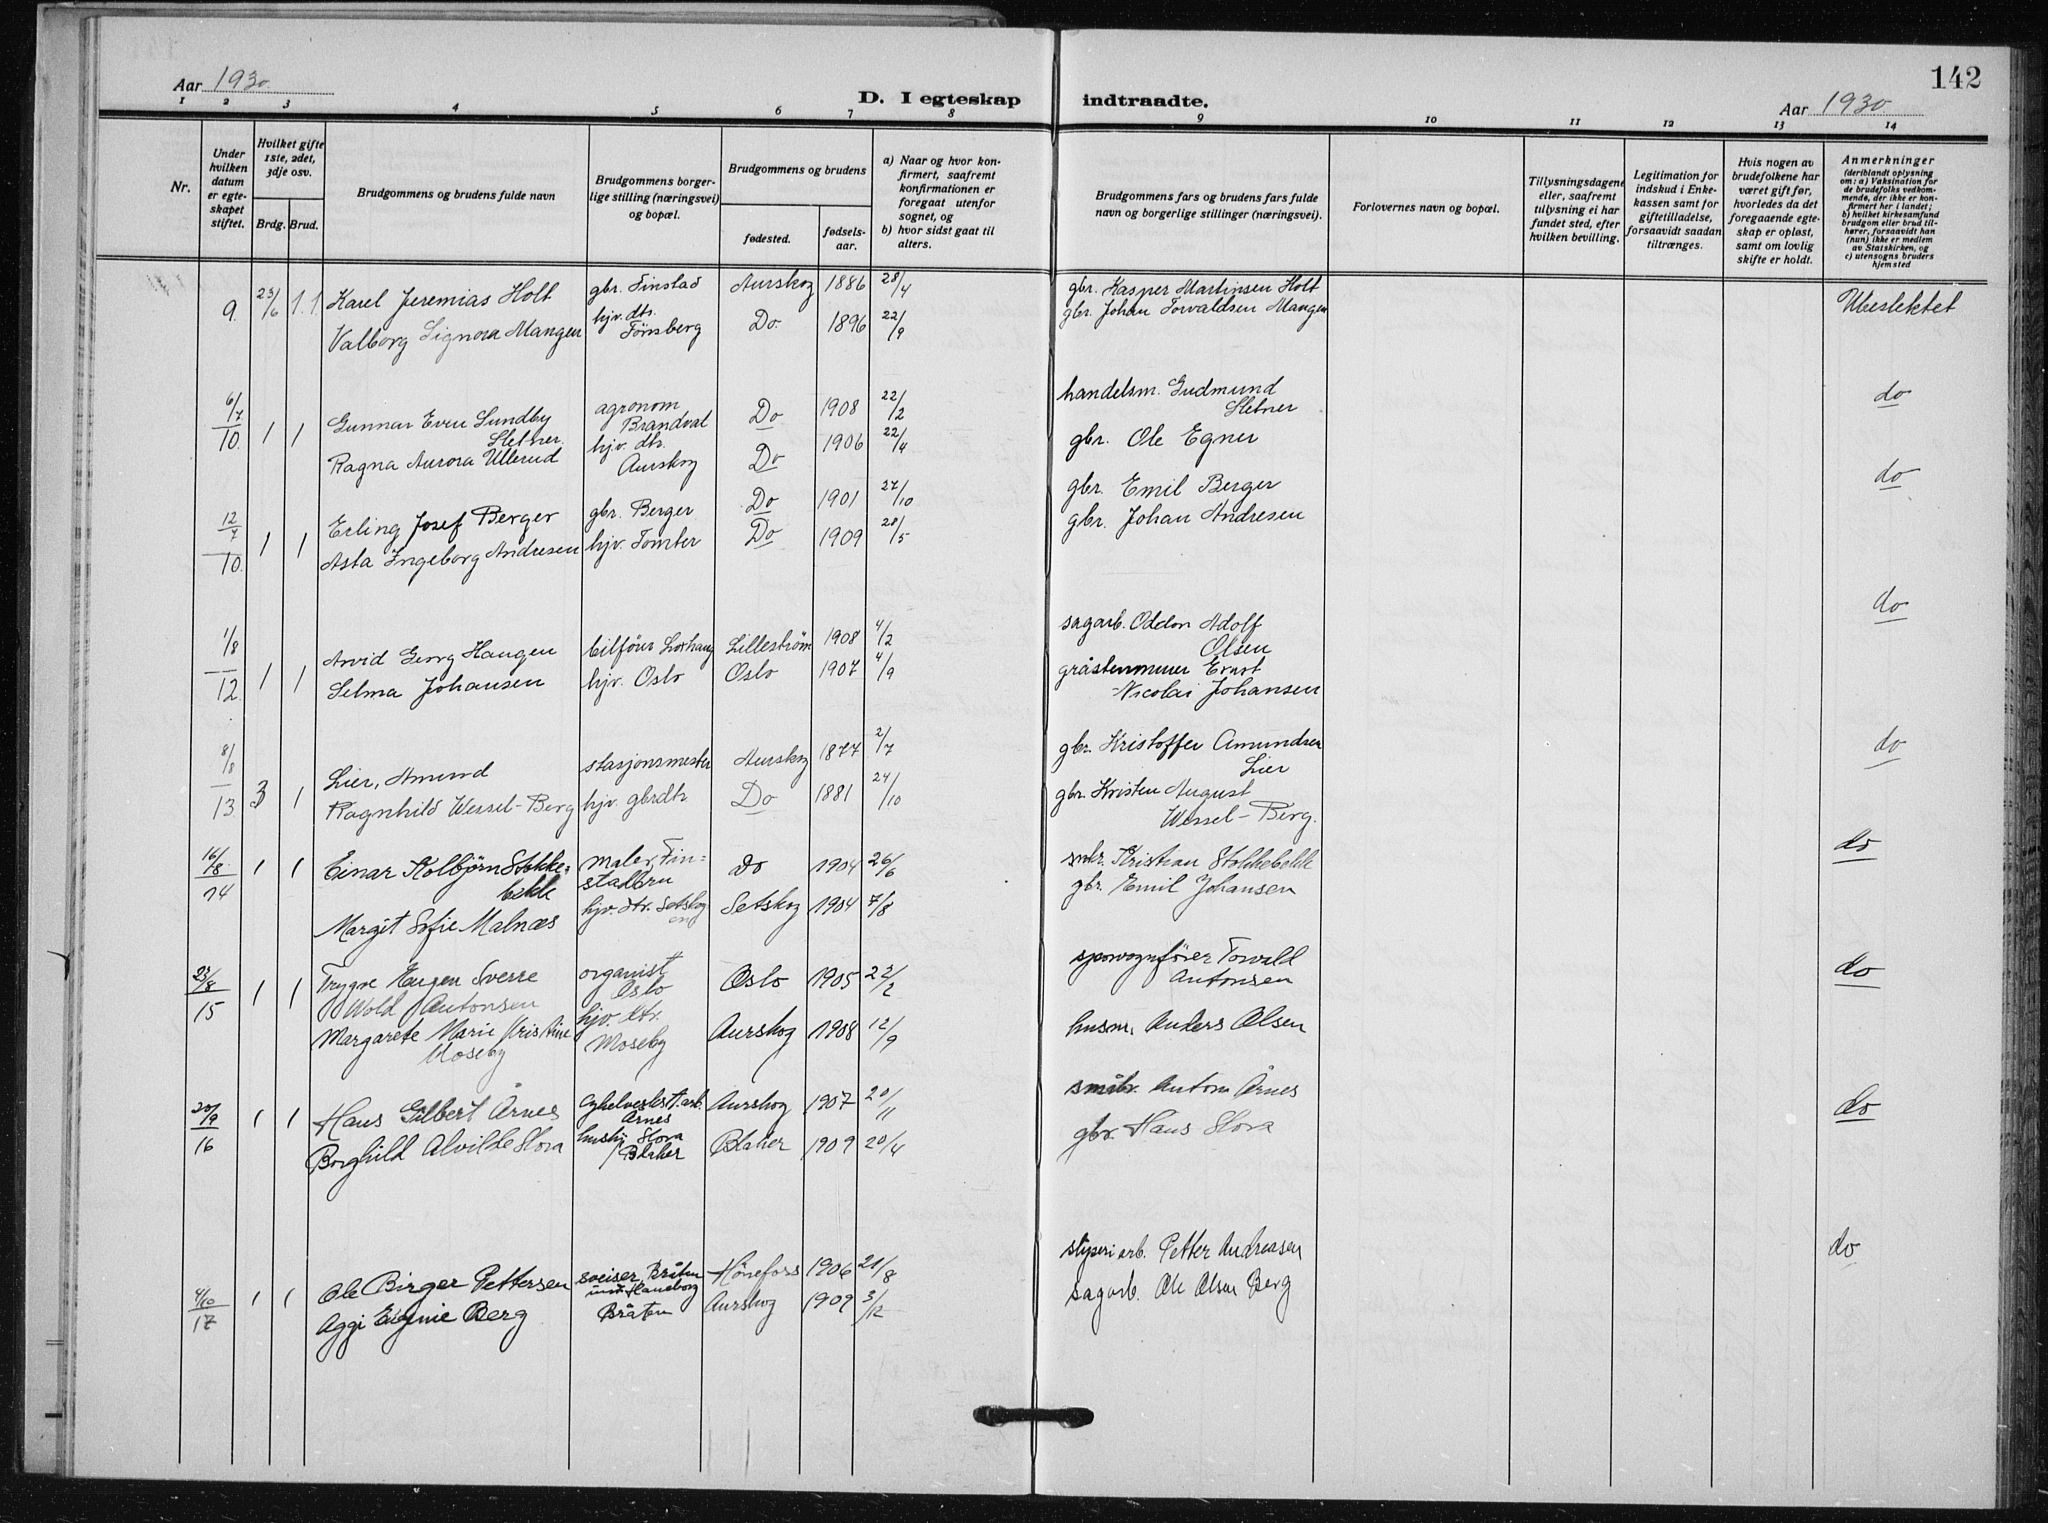 142
Aar 1930.
D. I egteskap indtraadte.
Aar 1930.
1 2 3 4 5 6 7 8 9 10 11 12 13 14
Nr.
Under hvilken datum er egteskapet stiftet.
Hvilket gifte 1ste, 2det, 3dje osv.
Brdg. Brud.
Brudgommens og brudens fulde navn
Brudgommens borgerlige stilling (næringsvei) og bopæl.
Brudgommens og brudens
fødested.
fødselsaar.
a) Naar og hvor konfirmert, saafremt konfirmationen er foregaat utenfor sognet, og
b) hvor sidst gaat til alters.
Brudgommens fars og brudens fars fulde navn og borgerlige stillinger (næringsvei).
Forlovernes navn og bopæl.
Tillysningsdagene eller, saafremt tillysning ei har fundet sted, efter hvilken bevilling.
Legitimation for indskud i Enkekassen samt for giftetilladelse, forsaavidt saadan tiltrænges.
Hvis nogen av brudefolkene har været gift før, hvorledes da det foregaaende egteskap er opløst, samt om lovlig skifte er holdt.
Anmerkninger (deriblandt oplysning om: a) Vaksination for de brudefolks vedkommende, der ikke er konfirmert her i landet; b) hvilket kirkesamfund brudgom eller brud tilhører, forsaavidt han (hun) ikke er medlem av Statskirken, og c) utensogns bruders hjemsted
9. 23/6 1. 1. Karel Jeremias Holt gbr. Finstad Aurskog 1886 28/4 gbr. Kasper Martinsen Holt Ubeslektet
Valborg Signora Mangen hjv. dtr. Tønsberg Do. 1896 22/9 gbr. Johan Torvaldsen Mangen
6/7 10. 1 1 Gunnar Even Lundby Sletner agronom Brandval Do 1908 22/2 handelsm. Gudmund Sletner do
Ragna Aurora Ullerud hjv. dtr. Aurskog Do 1906 22/4 gbr. Ole Egner
12/7 10. 1 1 Erling Josef Berger gbr. Berger Do 1901 27/10 gbr. Emil Berger do
Asta Ingeborg Andresen hjv. Tomter Do 1909 28/5 gbr. Johan Andresen
1/8 12. 1 1 Arvid Georg Haugen bilfører Lillestrøm 1908 4/2 sagarb. Oddon Adolf Olsen do
Selma Johansen hjv. Oslo Oslo 1907 4/9 Ernst Nicolai Johansen
8/8 13. 3 1 Lier, Amund stasjonsmester Aurskog 1877 2/7 gbr. Kristoffer Amundsen Lier do
Ragnhild Wessel-Berg hjv. gbrdtr Do 1881 24/10 gbr. Kristen August Wessel-Berg.
16/8 14 1 1 Einar Kolbjørn Stokkebekk maler, Finstadbru do 1904 26/6 Kristian Stokkebekk do
Margit Sofie Malnæs hjv. dtr. Setskogen Setskog 1904 7/8 gbr. Emil Johansen
23/8 15 1 1 Trygve Eugen Sverre Wold Antonsen organist Oslo Oslo 1905 22/2 sporvognfører Torvald Antonsen do
Margarete Marie Kristine Moseby hjv. dtr. Moseby Aurskog 1908 12/9 husm. Anders Olsen
20/9 16 1 1 Hans Gilbert Årnes Årnes Aurskog 1907 20/11 småbr. Anton Årnes do
Borghild Alvilde Slora hushj. Slora Blaker Blaker 1909 20/4 gbr. Hans Slora
4/10 17 1 1 Ole Birger Pettersen sveiser, Bråten Haneborg Hønefoss 1906 21/8 arb. Petter Andreasen do
Aggi Eugenie Berg Bråten Aurskog 1909 3/12 sagarb. Ole Olsen Berg